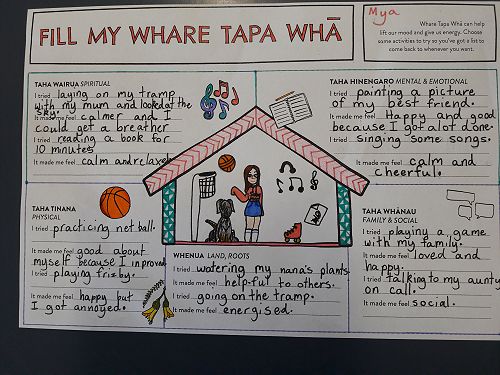 FILL MY WHARE TAPA WHĀ
Mya
Where Tapa Whā can help
lift our mood and give us energy. Choose
some activities to try so you've got a list to
come back to whenever you want.
TAHA WAIRUA SPIRITUAL
I tried laying on my tramp
with my mum and looked at the
sky.
It made me feel calmer and I
could get a breather
I tried reading a book for
10 minutes
It made me feel calm and relaxed
TAHA HINENGARO MENTAL & EMOTIONAL
I tried painting a picture
of my best friend.
It made me feel Happy and good
because I got alot done.
I tried singing some songs.
It made me feel calm and
cheerful.
TAHA TINANA
PHYSICAL
I tried practicing net ball.
It made me feel good about
myself because I improved
I tried playing frizby.
It made me feel happy but
I got annoyed.
WHENUA LAND, ROOTS
I tried watering my nana's plants
It made me feel helpful to others.
I tried going on the tramp.
It made me feel energised.
TAHA WHĀNAU
FAMILY & SOCIAL
I tried playing a game
with my family.
It made me feel loved and
happy.
I tried talking to my aunty
on call.
It made me feel social.